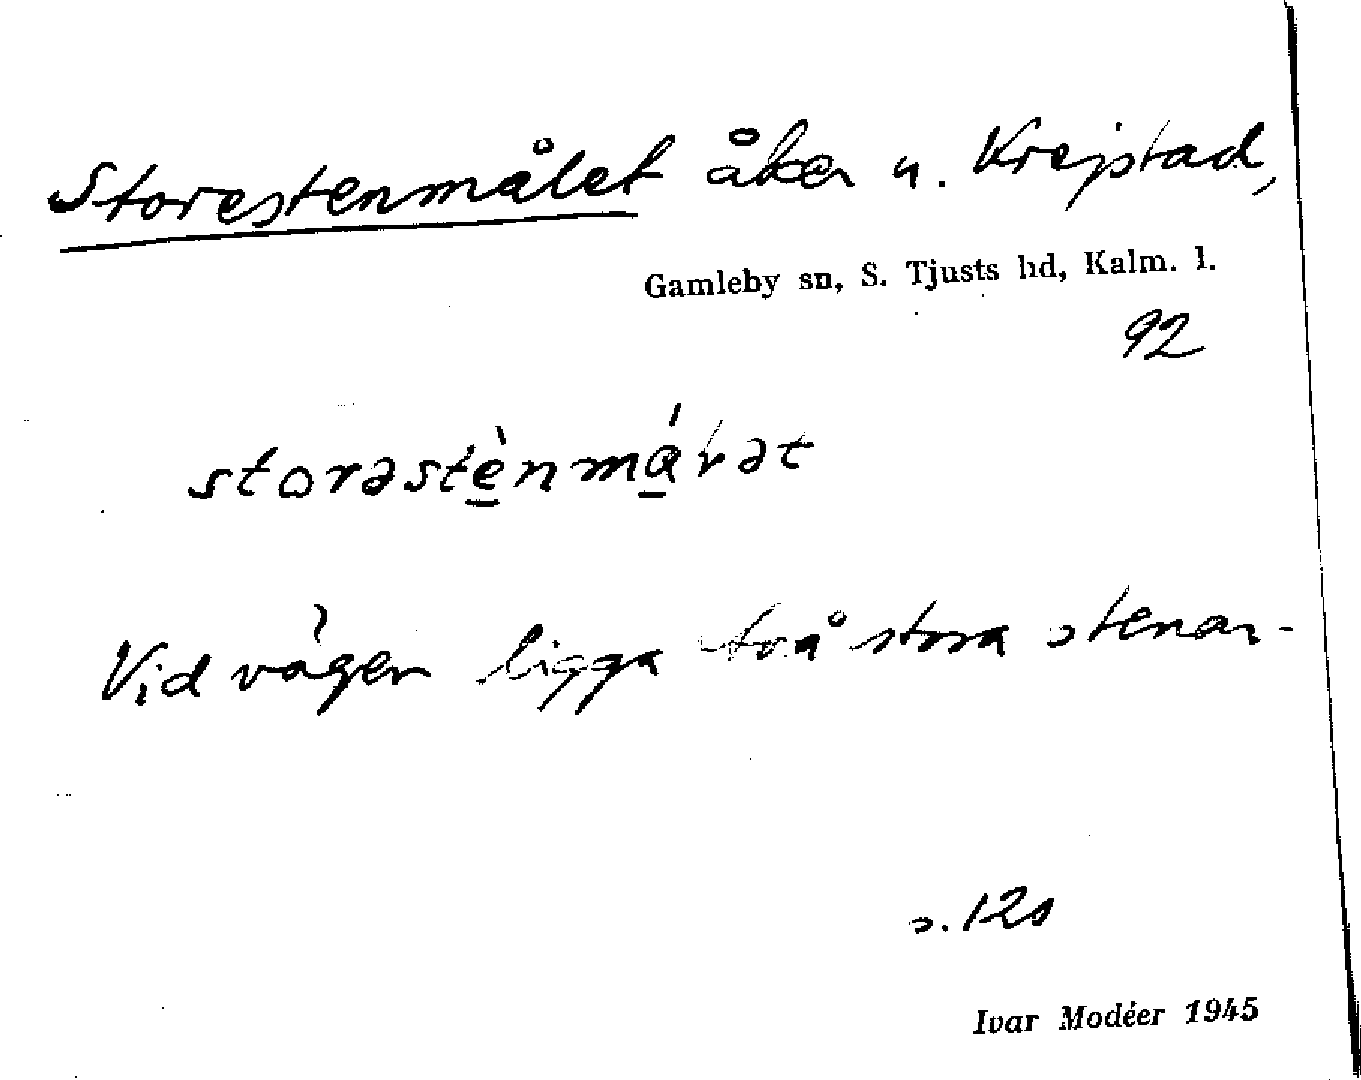 Storestenmålet åker u. Krejstad,
Gamleby sn, S. Tjusts hd, Kalm. l.
92
storəstènmárət
Vid vägen ligga två stora stenar.
s. 120
Ivar Modéer 1945